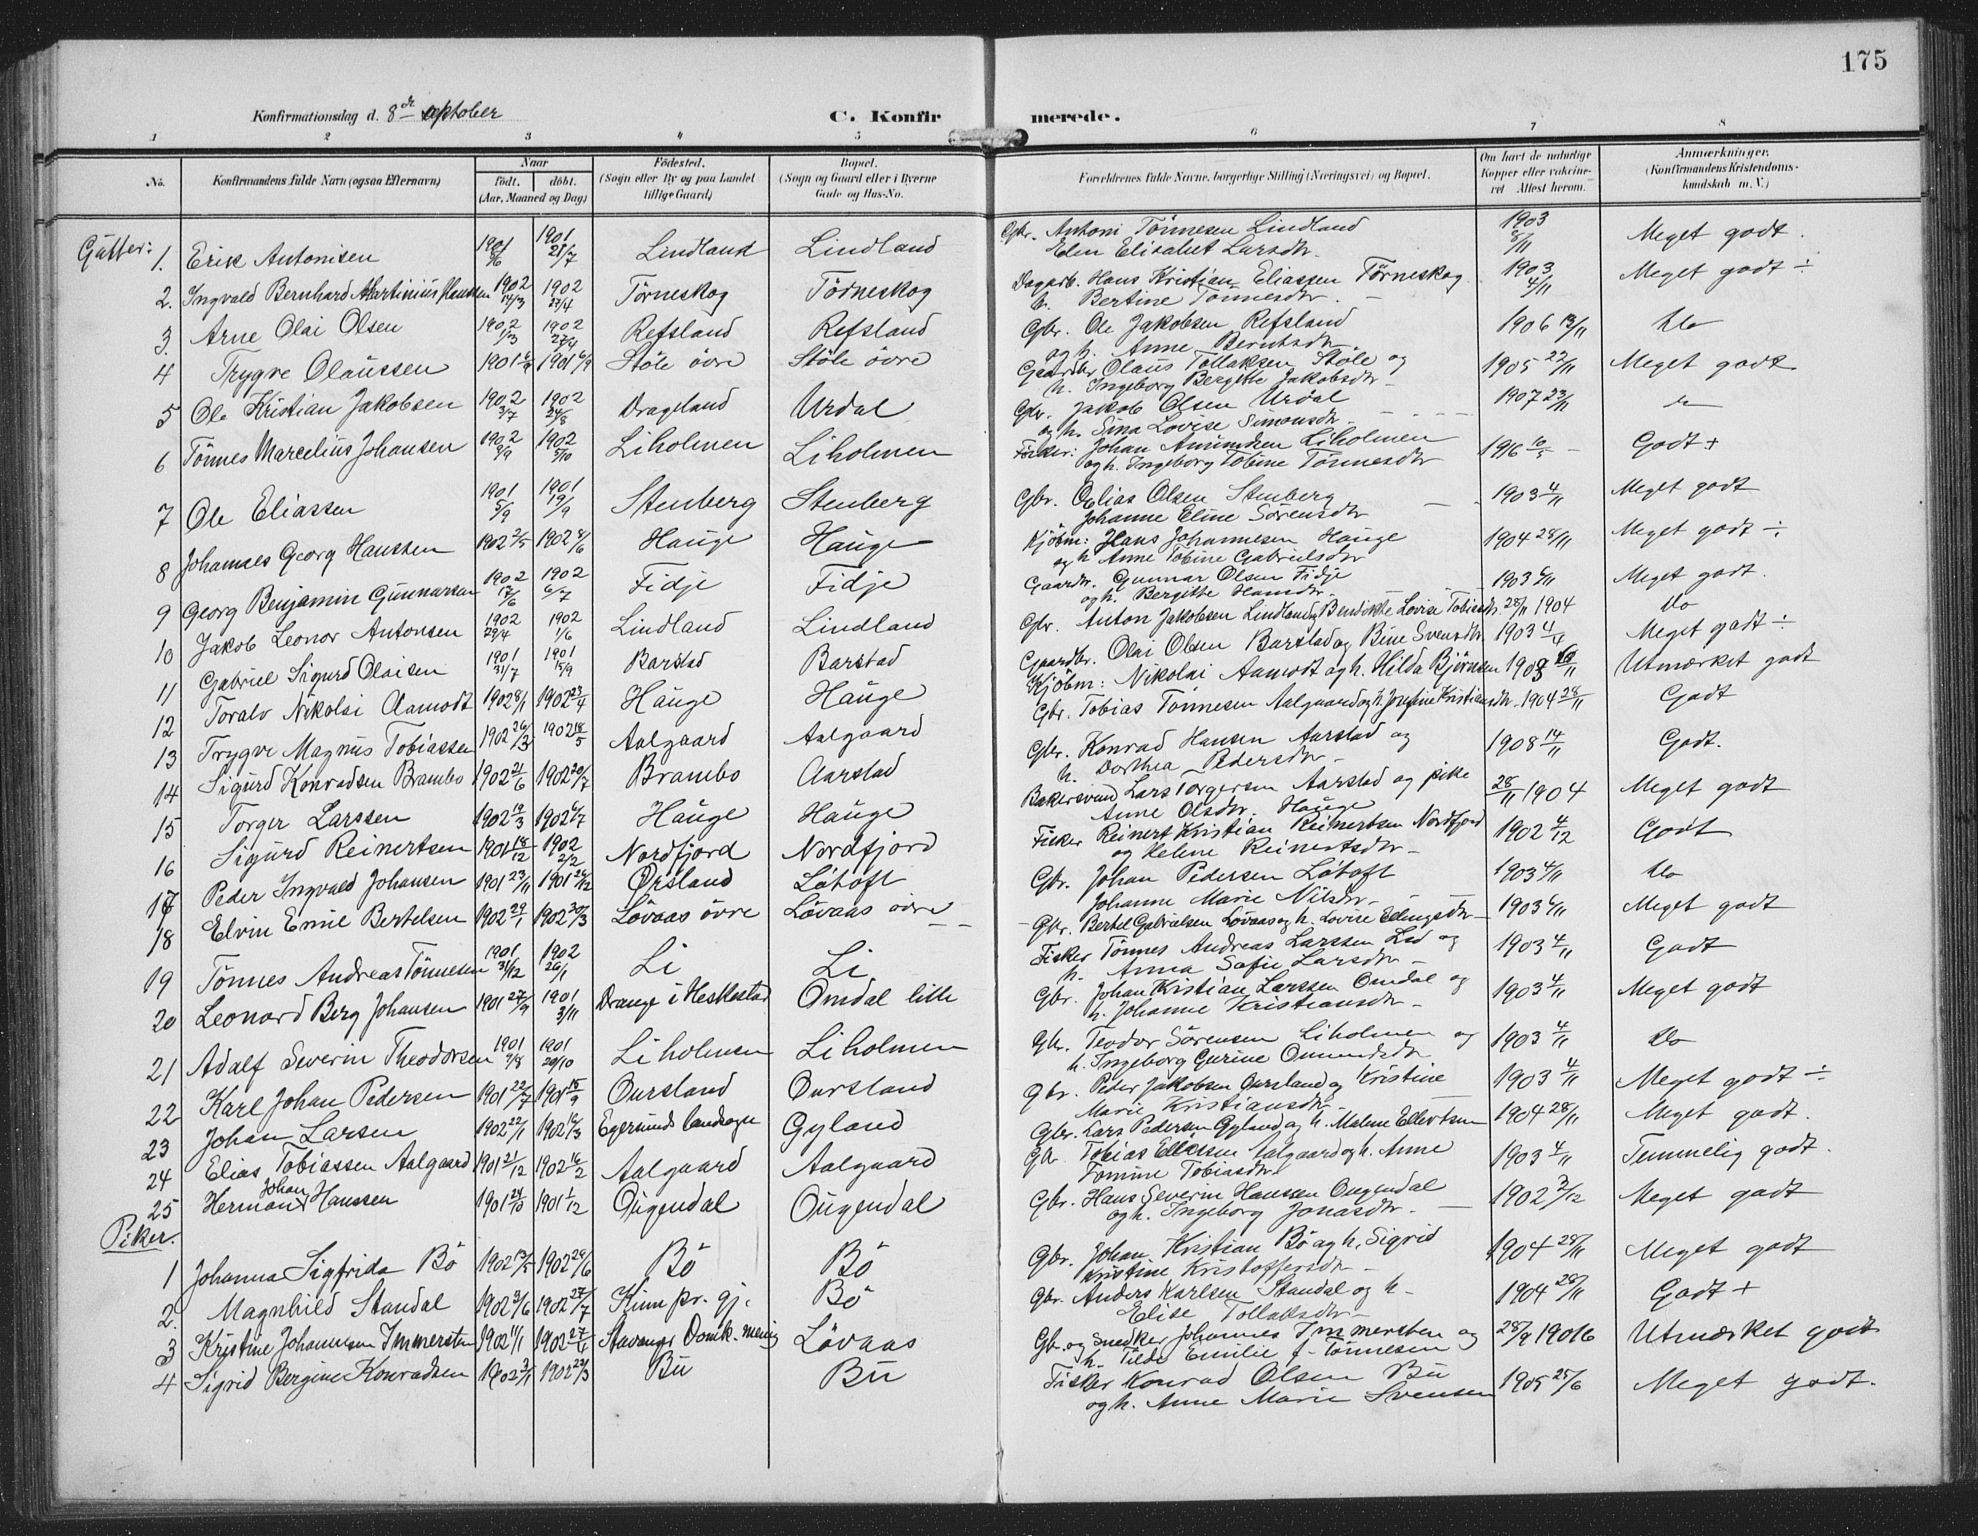 175
Konfirmationsdag d. 8de oktober
C. Konfirmerede.
1 2 3 4 5 6 7 8
No. Konfirmandens fulde Navn (ogsaa Efternavn)
Naar födt. döbt. (Aar, Maaned og Dag)
Födested. (Sogn eller By og paa Landet tillige Gaard)
Bopæl. (Sogn og Gaard eller i Byerne Gade og Hus-No.
Forældrenes fulde Navne, borgerlige Stilling (Næringsvei) og Bopæl.
Om havt de naturlige Kopper eller vaksineret Attest herom.
Anmærkninger. (Konfirmandens Kristendomskundskab m. V.)
Gutter:
1. Erik Antonisen 1901 1901 21/7 Lindland Lindland Gbr. Antoni Tönnesen Lindland Elen Elisabet Larsdtr. 1903 Meget godt.
2. Ingvald Bernhard Martinius Hanssen 1902 14/3 1902 27/4 Törneskog Törneskog Dagarb. Hans Kristian Eliassen Törneskog h. Bertine Tönnesdtr. 1903 4/11 Meget godt ÷
3. Arne Olai Olsen 1902 1/3 1902 27/4 Refsland Refsland Gbr. Ole Jakobsen Refsland og h. Anne Berntsdtr. 1906 13/11 Do
4 Trygve Olaussen 1901 1901 6/9 Stöle övre Stöle övre Gaardbr Olaus Tollaksen Stöle og h. Ingeborg Bergitte Jakobsdtr 1905 22/11 Meget godt
5 Ole Kristian Jakobsen 1902 3/7 1902 24/8 Drageland Urdal Gbr. Jakob Olsen Urdal og h. Sina Lovise Simonsdtr 1907 23/11
6 Tönnes Marcelius Johansen 1902 9/9 1902 5/10 Liholmen Liholmen Fisker: Johan Liholmen og h. Ingeborg Tobine Tönnesdtr 1916 16/5 Godt +
7 Ole Eliassen 1901 5/9 1901 19/9 Stenberg Stenberg Gbr. Elias Olsen Stenberg Johanne Eline Sörensdtr 1903 4/11 Meget godt
8 Johannes Georg Hanssen 1902 2/5 1902 8/6 Hauge Hauge Kjöbm: Hans Johannesen Hauge og h Anne Tobine Gabrielsdtr 1904 28/11 Meget godt ÷
9 Georg Benjamin Gunnarsen 1902 17/6 1902 6/7 Fidje Fidje Gaardbr. Gunnar Olsen Fidje og h. Bergitte Hansdtr. 1903 Meget godt.
10 Jakob Leonor Antonsen 1902 29/4 1902 1/6 Lindland Lindland Gbr. Anton Jakobsen Lindland og Bendikke Lovise Tobiasdtr 28/11 1904 Do
11 Gabriel Sigurd Olaisen 1901 31/7 1901 15/9 Barstad Barstad Gaardbr. Olai Olsen Barstad og Bine Svensdtr 1903 4/11 Meget godt ÷
12 Toralv Nikolai Aamodt 1902 8/1 1902 23/4 Hauge Hauge Kjöbm: Nikolai Aamodt og h. Hilda Björnsen Utmærket godt
13 Trygve Magnus Tobiassen 1902 26/3 1902 18/5 Aalgaard Aalgaard Gbr. Tobias Tönnesen Aalgaard og h. Josefine Kristiansdtr. 1904 28/11 Godt
14 Sigurd Konradsen Brambo 1902 21/6 1902 20/7 Brambo Aarstad Gbr. Konrad Hansen Aarstad og h. Dorthea Pedersdtr 1908 14/11 Godt.
15 Torger Larssen 1902 19/3 1902 6/7 Hauge Hauge Bakersvend Lars Torgersen Aarstad og pike Anne Olsdtr. Hauge 28/11 1904 Meget godt
16 Sigurd Reinertsen 1901 18/12 1902 2/2 Nordfjord Nordfjord Fisker Reinert Kristian Reinertsen Nordfjord og Helene Reinertsdtr 1902 4/12 Godt
17 Peder Ingvald Johansen 1901 23/11 1901 26/12 Örsland Lötoft Gbr. Johan Pedersen Lötoft Johanne Marie Nilsdtr 1903 4/11 Do
18 Elvin Emil Bertelsen 1902 29/1 1902 30/3 Lövaas övre Lövaas övre Gbr. Bertel Gabrielsen Lövaas og h. Lovise Edingsdtr 1903 Meget godt
19 Tönnes Andreas Tönnesen 1901 31/12 1902 26/1 Li Li Fisker Tönnes Andreas Larssen Lid og h. Anna Sofie Larsdtr 1903 4/11 Godt
20 Leonard Berg Johansen 1901 27/9 1901 3/11 Drange i Heskestad Omdal lille Gbr. Johan Kristian Larssen Omdal og h. Johanne Kristiansdtr 1903 4/11 Meget godt
21 Adolf Severin Theodorsen 1901 9/8 1901 20/10 Liholmen Liholmen Gbr. Teodor Sörensen Liholmen og h. Ingeborg Gurine Ommundsdtr 1903 4/11 Do
22 Karl Johan Pedersen 1901 22/7 1901 15/9 Oursland Oursland Gbr. Peder Jakobsen Oursland og Kristine Marie Kristiansdtr 1903 4/11 Meget godt ÷
23 Johan Larsen 1902 22/1 1902 16/3 Egersunds landsogn Gyland Gbr. Lars Pedersen Gyland og h. Malene Ellertsen 1904 28/11 Meget godt.
24 Elias Tobiassen Aalgaard 1901 21/12 1902 16/2 Aalgaard Aalgaard Gbr Tobias Aalgaard og h. Anne Tomine Tobiasdtr 1903 4/11 Temmelig godt.
25 Herman Johan Hanssen 1901 24/10 1901 1/12 Ougendal Ougendal Gbr. Hans Severin Hanssen Ougendal og h. Ingeborg Jonasdtr. 1902 2/12 Meget godt
Piker.
1 Johanna Sigfrida Bö 1902 13/5 1902 29/6 Bö Bö Gbr. Johan Kristian Bö og h. Sigrid Kristine Kristoffersdtr 1904 28/11 Meget godt
2. Magnhild Standal 1902 3/6 1902 27/7 Kinn pr. gj. Bö Gbr. Anders Karlsen Standal og h Elise Tollaksdtr 1904 28/11 Godt +
3 Kristine Johannesen Immersten 1902 11/1 1902 27/4 Stavanger Domk. menig Lövaas Gb. og Snedker Johannes Immersten og h. Tilda Emilie f. Tönnesen 28/9 1916 Utmærket godt
4 Sigrid Bergine Konradsen 1902 3/1 1902 23/3 Bu Bu Fisker Konrad Olsen Bu og h. Anne Marie Svensen 1905 25/6 Meget godt.